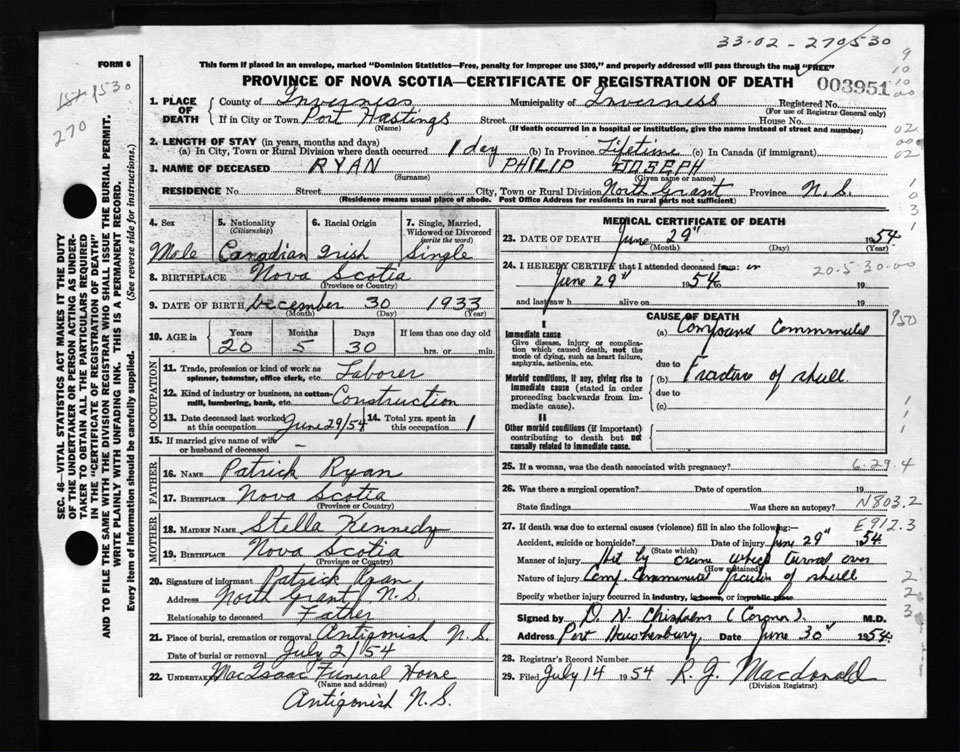 33-02-270530
FORM 6
This form if placed in an envelope, marked "Dominion Statistics—Free, penalty for improper use $300," and properly addressed will pass through the mail "FREE"
PROVINCE OF NOVA SCOTIA—CERTIFICATE OF REGISTRATION OF DEATH
003951
1. PLACE OF DEATH
County of Inverness Municipality of Inverness Registered No.
(For use of Registrar General only)
If in City or Town Port Hastings Street House No.
(Name) (If death occurred in a hospital or institution, give the name instead of street and number)
2. LENGTH OF STAY (in years, months and days)
(a) In City, Town or Rural Division where death occurred 1 day (b) In Province Lifetime (c) In Canada (if immigrant)
3. NAME OF DECEASED RYAN PHILIP JOSEPH
(Surname) (Given name or names)
RESIDENCE No Street City, Town or Rural Division North Grant Province N.S.
(Residence means usual place of abode. Post Office Address for residents in rural parts not sufficient)
4. Sex Male
5. Nationality (Citizenship) Canadian
6. Racial Origin Irish
7. Single, Married, Widowed or Divorced (write the word) Single
8. BIRTHPLACE Nova Scotia
(Province or Country)
9. DATE OF BIRTH December 30 1933
(Month) (Day) (Year)
10. AGE in Years 20 Months 5 Days 30 If less than one day old hrs. or min.
OCCUPATION
11. Trade, profession or kind of work as spinner, teamster, office clerk, etc. Laborer
12. Kind of industry or business, as cotton-mill, lumbering, bank, etc. Construction
13. Date deceased last worked at this occupation June 29/54
14. Total yrs. spent in this occupation 1
15. If married give name of wife or husband of deceased –
FATHER
16. NAME Patrick Ryan
17. BIRTHPLACE Nova Scotia
(Province or Country)
MOTHER
18. MAIDEN NAME Stella Kennedy
19. BIRTHPLACE Nova Scotia
(Province or Country)
20. Signature of informant Patrick Ryan
Address North Grant N.S.
Relationship to deceased Father
21. Place of burial, cremation or removal Antigonish N.S.
Date of burial or removal July 2/54
22. UNDERTAKER MacIsaac Funeral Home
(Name and address)
Antigonish N.S.
MEDICAL CERTIFICATE OF DEATH
23. DATE OF DEATH June 29" 1954
(Month) (Day) (Year)
24. I HEREBY CERTIFY that I attended deceased from: on
June 29" 1954 to 19
20-5-30-00
and last saw h alive on 19
CAUSE OF DEATH
I
Immediate cause
Give disease, injury or complication which caused death, not the mode of dying, such as heart failure, asphyxia, asthenia, etc.
(a) Compound Comminuted
due to
Morbid conditions, if any, giving rise to immediate cause (stated in order proceeding backwards from immediate cause).
(b) Fracture of skull.
due to
(c)
II
Other morbid conditions (if important) contributing to death but not causally related to immediate cause.
25. If a woman, was the death associated with pregnancy?
6-29-4
26. Was there a surgical operation? Date of operation 19
State findings Was there an autopsy?
N803.2
27. If death was due to external causes (violence) fill in also the following:—
E912.3
Accident, suicide or homicide? Date of injury June 29" 1954
(State which)
Manner of injury Hit by crane which turned over
(How sustained)
Nature of injury Comp. Comminuted fracture of skull
Specify whether injury occurred in industry, in home, or in public place
Signed by D. N. Chisholm (Coroner). M.D.
Address Port Hawkesbury, Date June 30" 1954
28. Registrar's Record Number
29. Filed July 14 1954 R. J. Macdonald
(Division Registrar)
SEC. 46—VITAL STATISTICS ACT MAKES IT THE DUTY
OF THE UNDERTAKER OR PERSON ACTING AS UNDER-
TAKER TO OBTAIN ALL THE PARTICULARS REQUIRED
IN THE "CERTIFICATE OF REGISTRATION OF DEATH"
AND TO FILE THE SAME WITH THE DIVISION REGISTRAR WHO SHALL ISSUE THE BURIAL PERMIT.
WRITE PLAINLY WITH UNFADING INK. THIS IS A PERMANENT RECORD.
Every item of information should be carefully supplied. (See reverse side for instructions.)
270
950